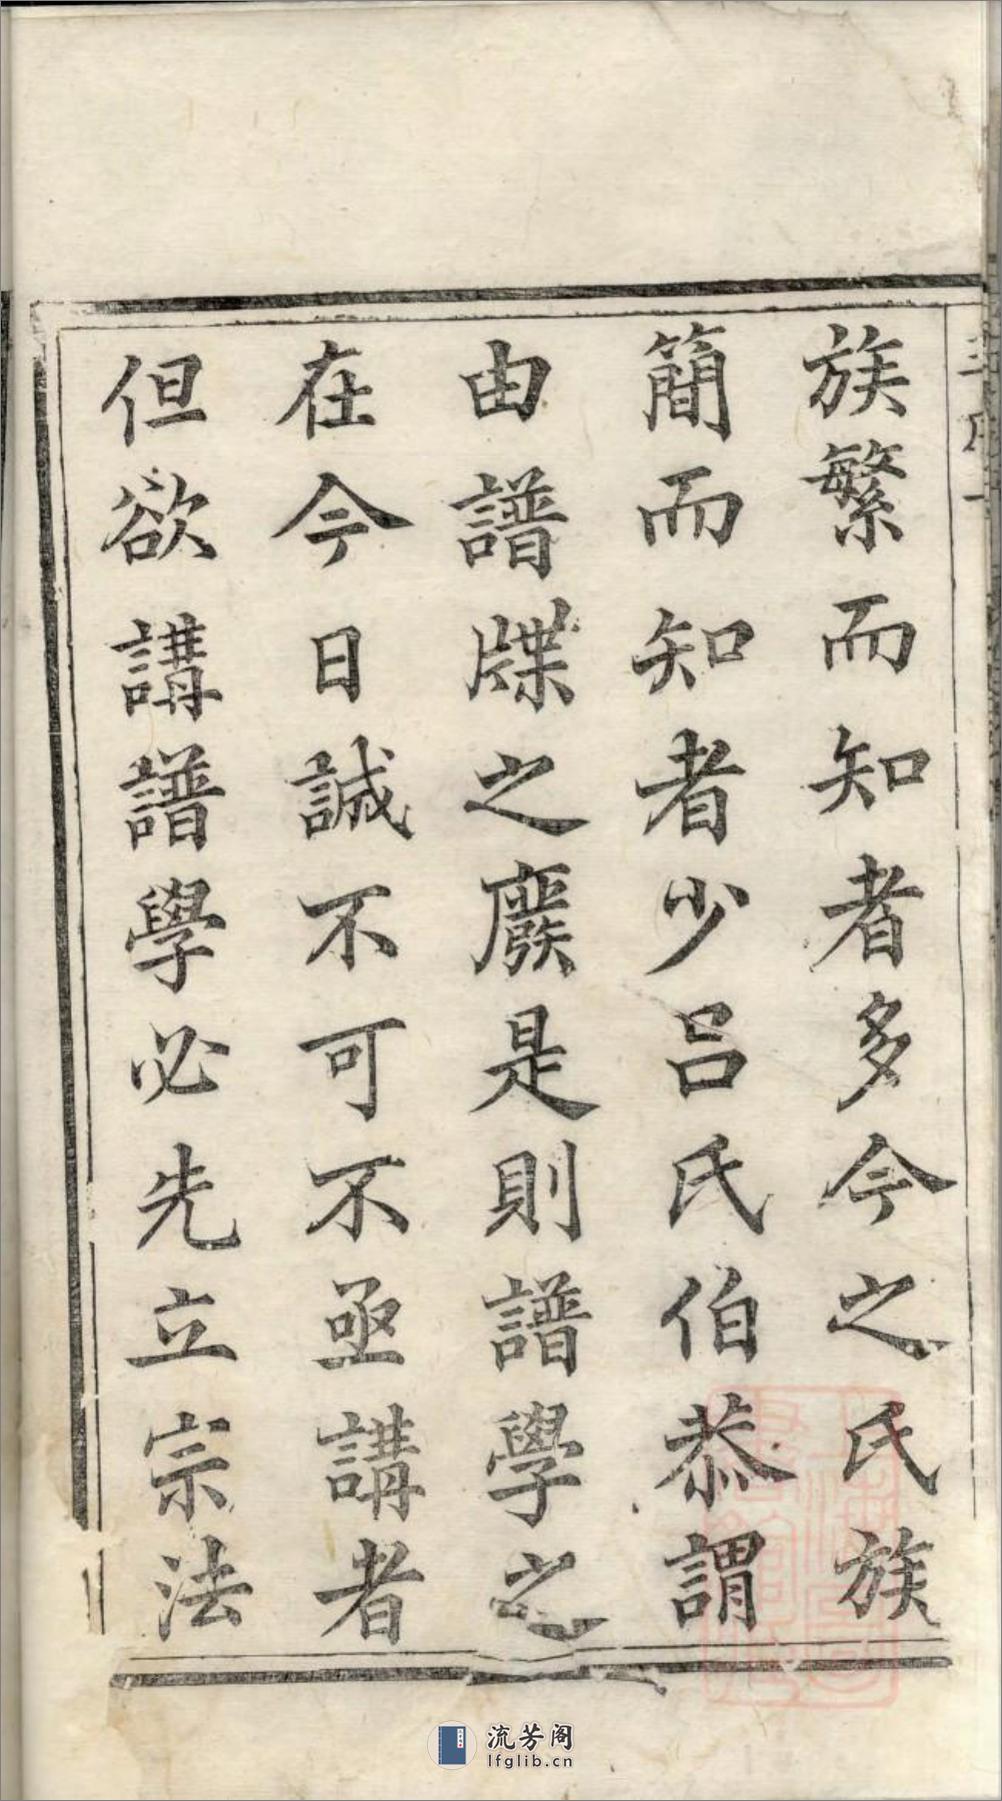 族繁而知者多今之氏族
簡而知者少呂氏伯恭謂
由譜牒之廢是則譜學之
在今日誠不可不亟講者
但欲講譜學必先立宗法
流芳阁
lfglib.cn